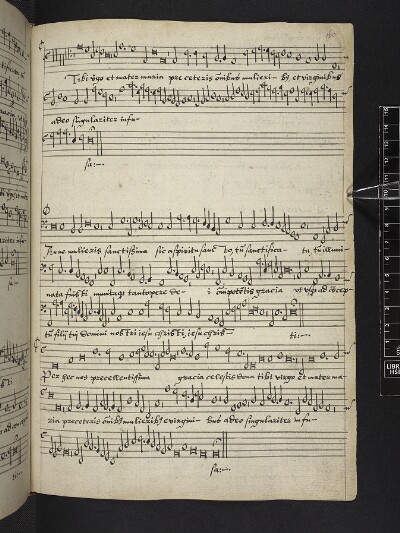 Tibi v'go et mater maria pre ceteris o͞nibus mulieri- b9 et virginibus
adeo singulariter infu-
sa:~
Tu ne mulieris sanctissima sic a spiritu sanc- to, tu sanctifica- ta, tu illumi-
nata fuisti tantopere de- i o͞mipote͞tis gracia
tu filij tui domini nostri iesu christi, iesu chris- ti:~
Per hec nos precellentissima gracia celestis dona tibi virgo et mater ma-
ria pre ceteris o͞nib9 mulierib9 et virgini- bus adeo singulariter in fu-
sa:~